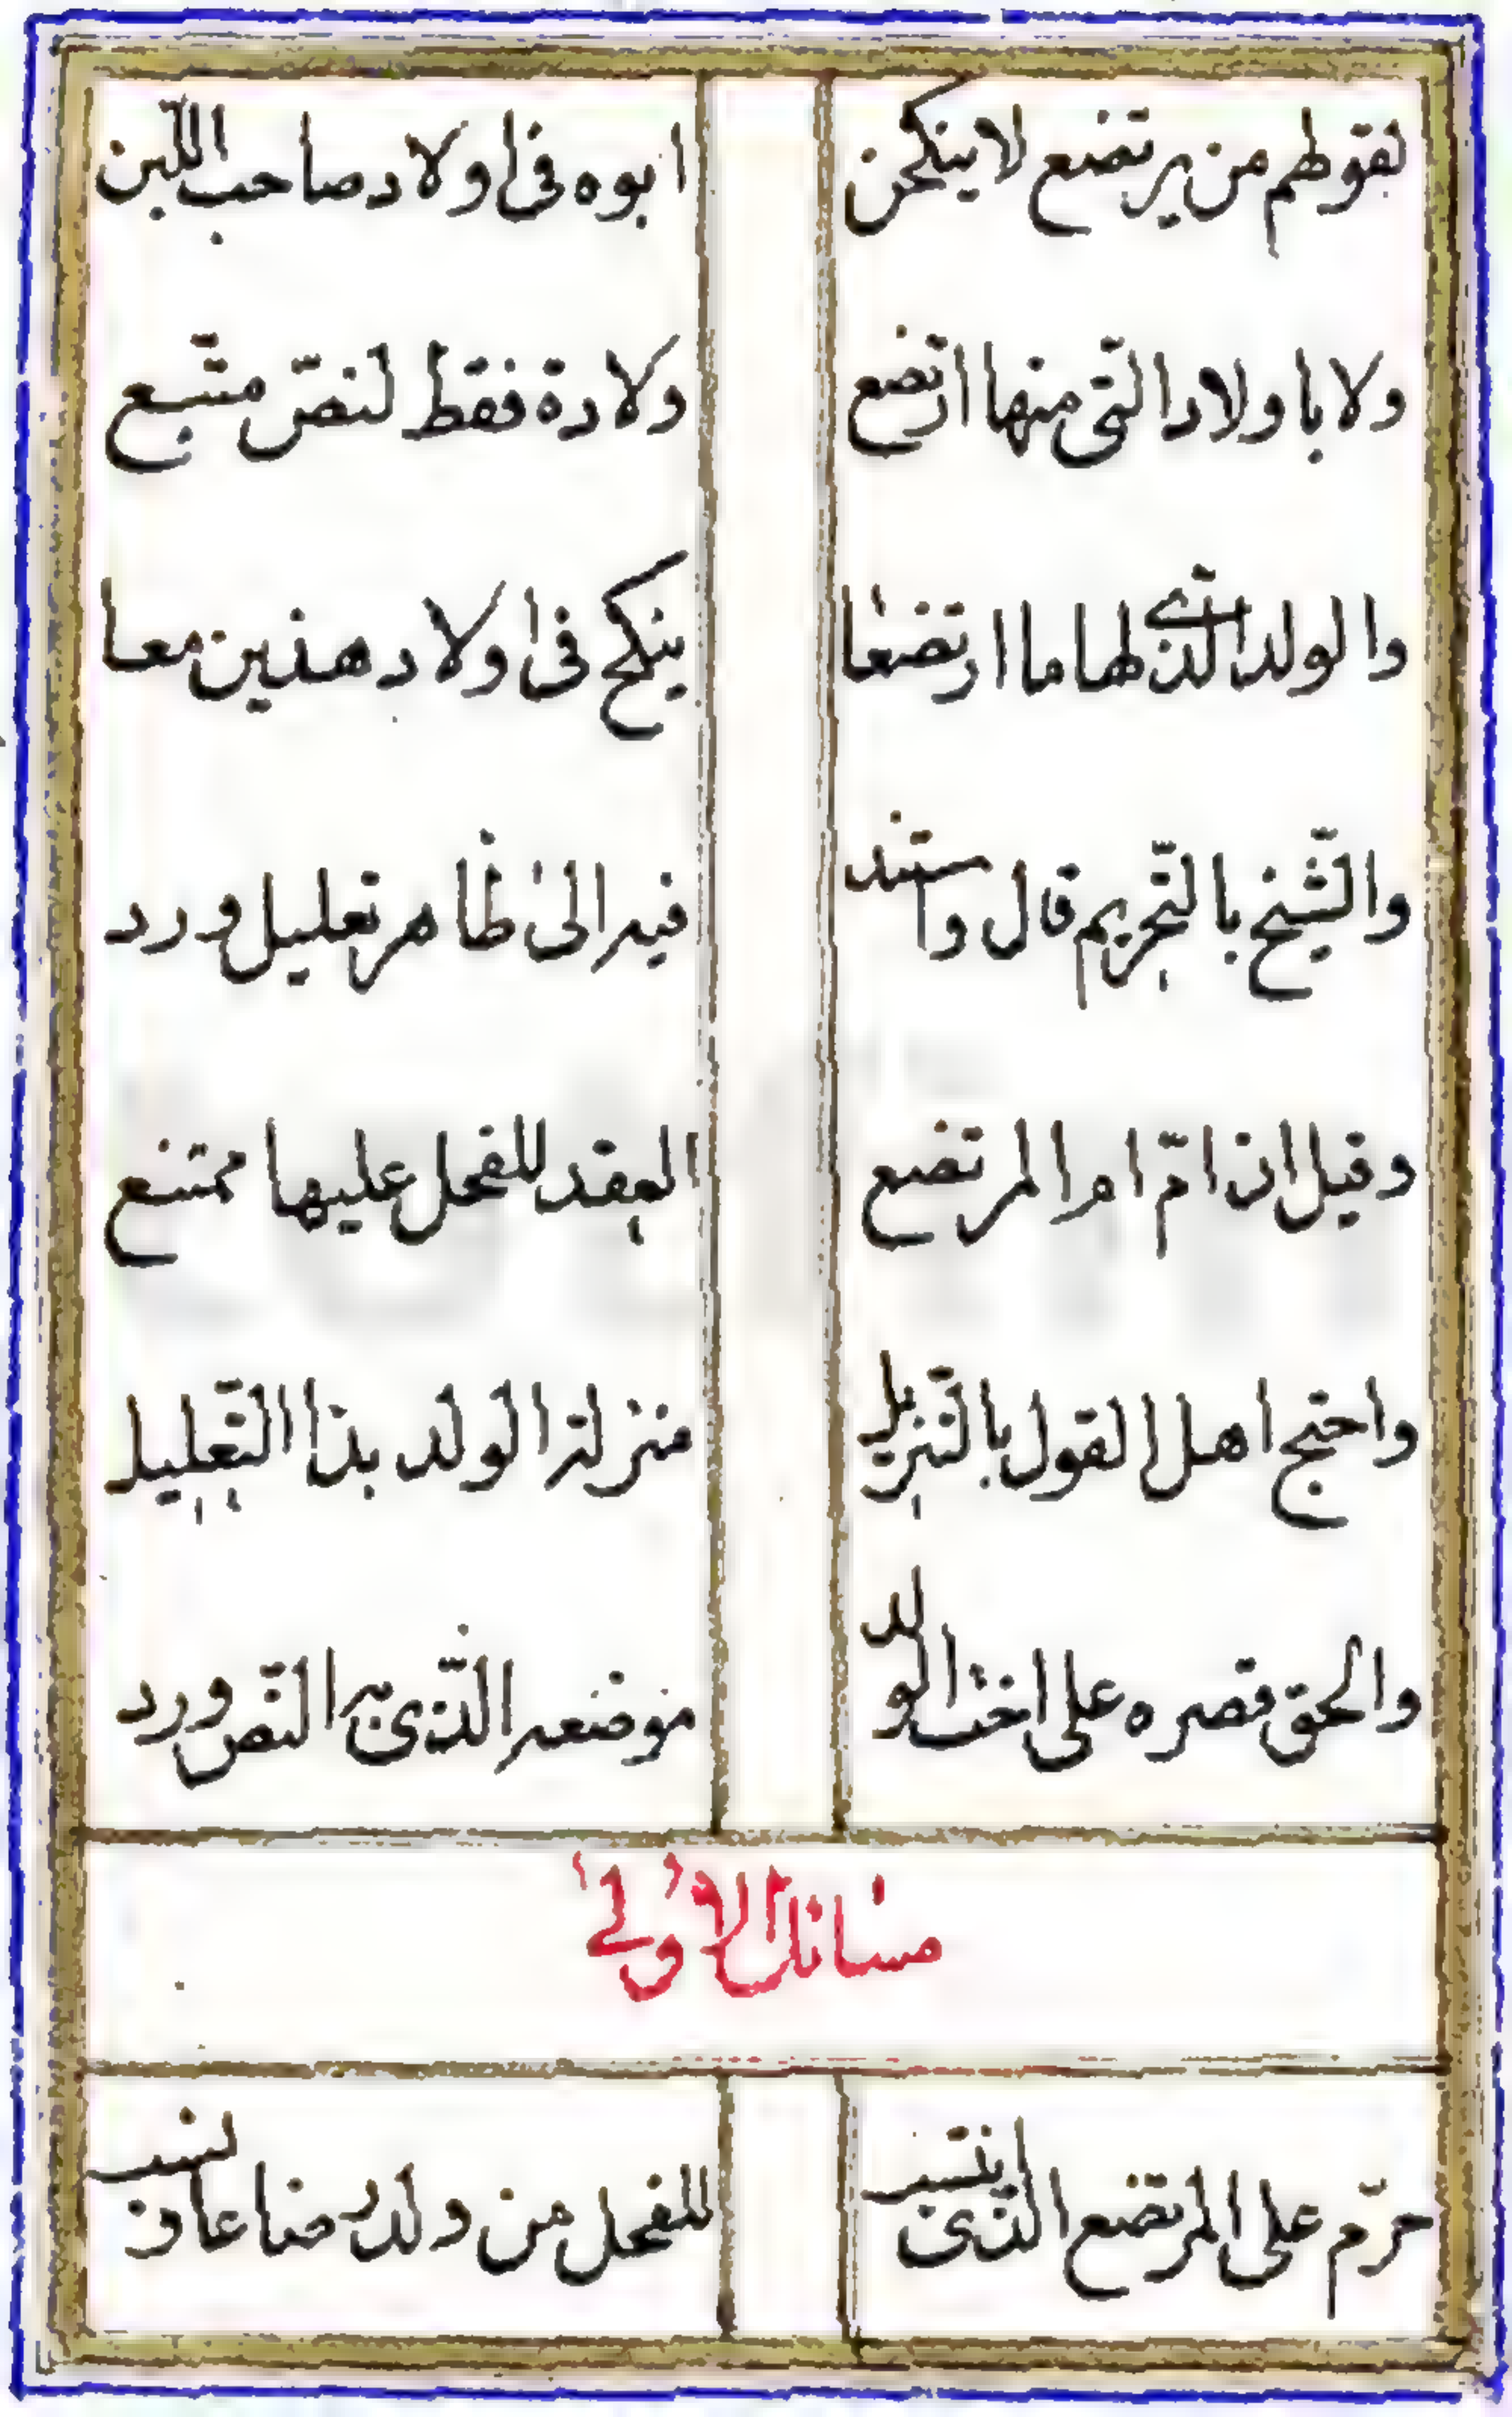 لقولهم من يرتضع لا ينكحن ابوه فى اولاد صاحب اللبن
ولا باولاد الّتى منها ارتضع ولادة فقط لنصّ متّبع
والولد الّذى لها ما ارتضعا ينكح فى اولاد هذين معا
والشّيخ بالتّحريم قال واستند فيه الى ظاهر تعليل ورد
وقيل ان امّ ام المرتضع العقد للفحل عليها ممتنع
واحتج اهل القول بالتّنزيل منزلة الولد بذا التّعليل
والحق قصره على اخت الولد موضعه الّذى به النّص ورد
مسائل الاولى
حرّم على المرتضع الّذى انتسب للفحل من ولد رضاعا و نسب